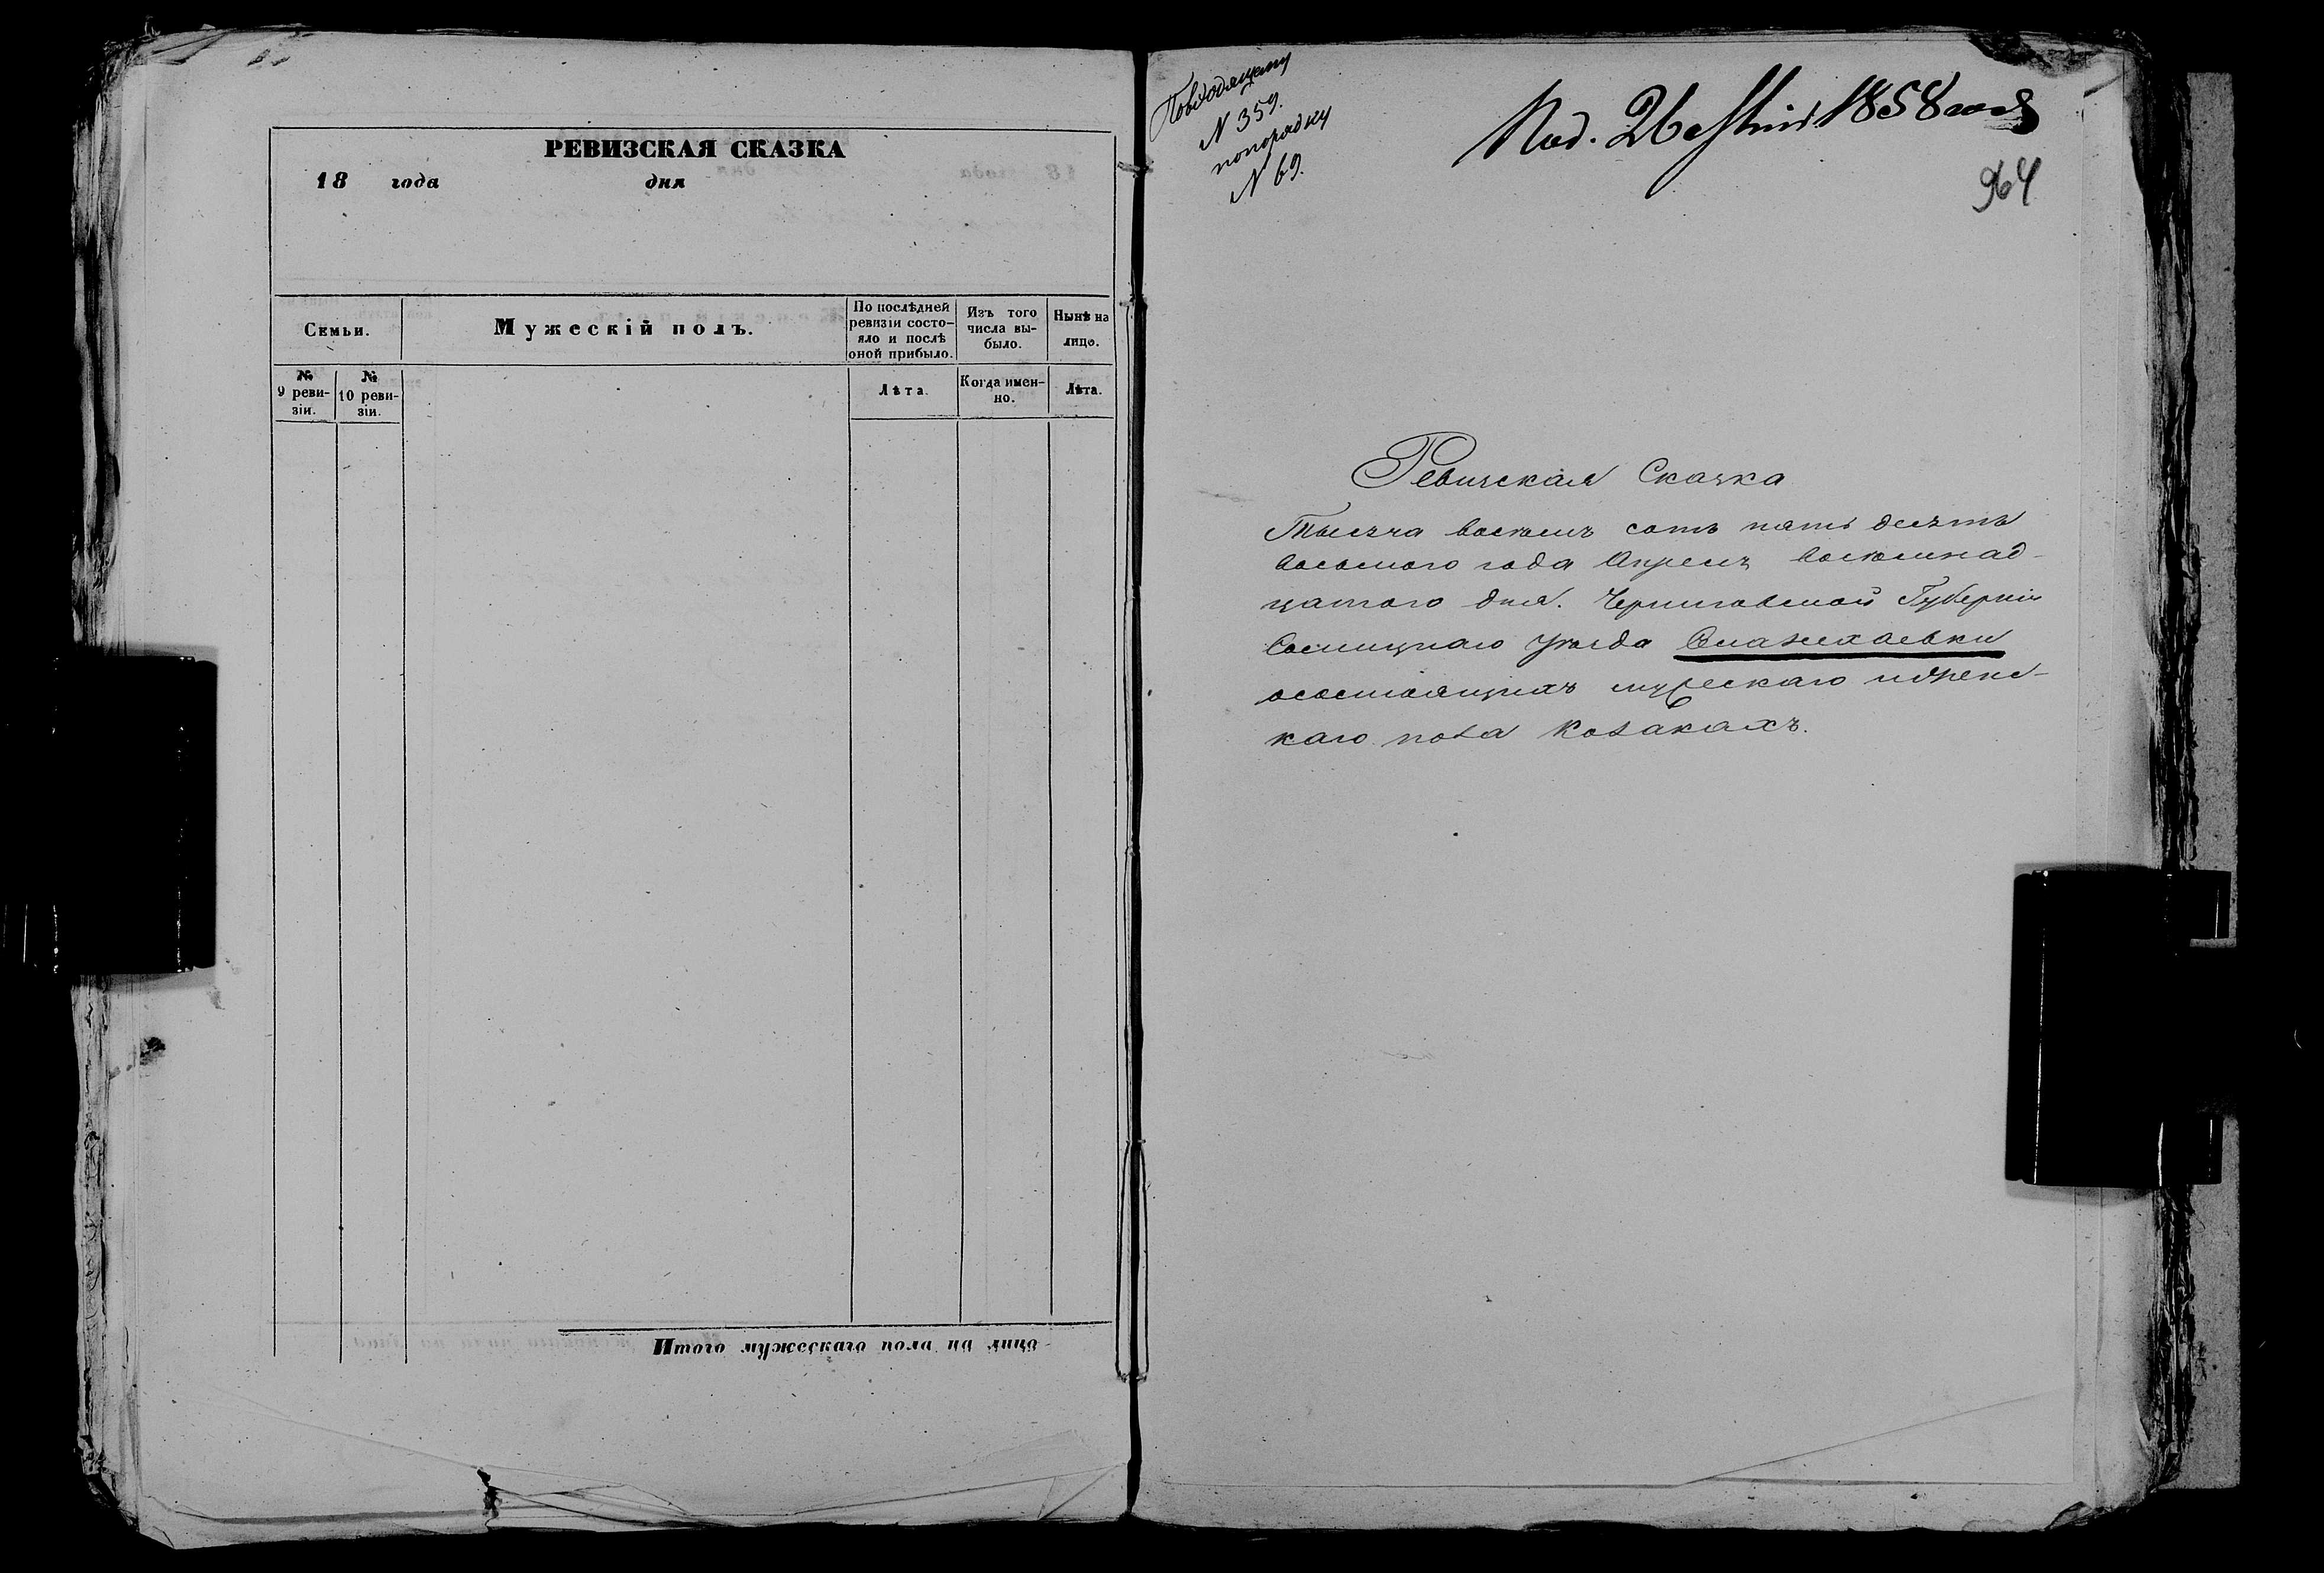 РЕВИЗСКАЯ СКАЗКА
18 года дня
Семьи.
Мужескій полъ.
По послѣдней ревизіи состо-яло и послѣ оной прибыло.
Изъ того числа вы-было.
Нынѣ на лицо.
№ 9 реви-зіи.
№ 10 реви-зіи.
Лѣта.
Когда имен-но.
Лѣта.
Итого мужескаго пола на лицо
Повходящему
N 359.
попорядку
N 69.
Под. 26 1858 года
964
Ревизская Сказка
Тысяча восемъ сотъ пять десятъ
восьмого года Апреля восемнад-
цатого дня. Черниговской Губерніи
Сосницкаго уѣзда
осостоящихъ мужескаго иженс-
каго пола Козакахъ.